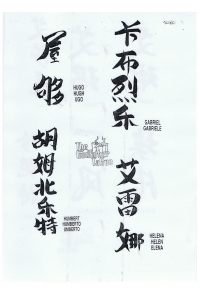 屋
HUGO
HUGH
UGO
胡
姆
北
乐
特
HUMBERT
HUMBERTO
UMBERTO
卡
布
烈
乐
GABRIEL
GABRIELE
艾
雷
娜
HELENA
HELEN
ELENA
The
Tattoo